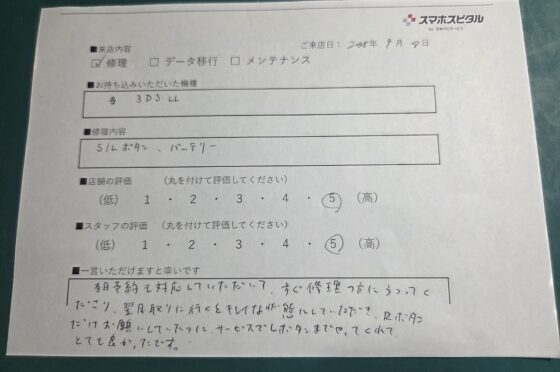 スマホスピタル
■来店内容
ご来店日： 年 9月 日
☑ 修理 □ データ移行 □ メンテナンス
■お持ち込みいただいた機種
3DS LL
■修理内容
S/Lボタン、バッテリー
■店舗の評価 （丸を付けて評価してください）
（低） 1 ・ 2 ・ 3 ・ 4 ・ 5 （高）
■スタッフの評価 （丸を付けて評価してください）
（低） 1 ・ 2 ・ 3 ・ 4 ・ 5 （高）
■一言いただけますと幸いです
当日予約も対応していただいて、すぐ修理の方にうつってく
ださり、翌日取りに行くとキレイな状態にしていただき、Rボタン
だけお願いしていたのに、サービスでLボタンまでやってくれて、
とても良かったです。